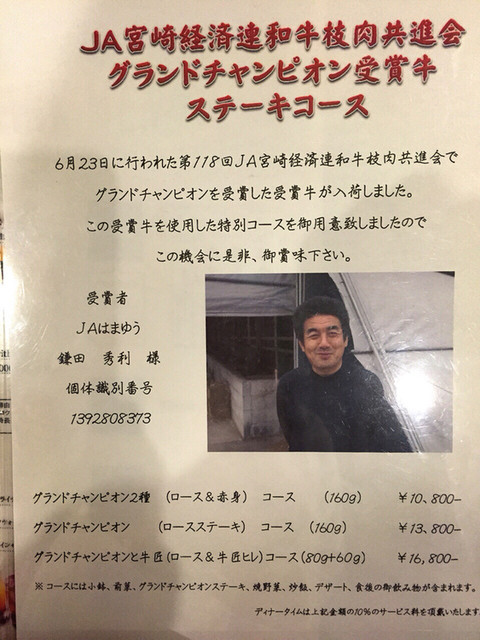 JA宮崎経済連和牛枝肉共進会
グランドチャンピオン受賞牛
ステーキコース
6月23日に行われた第118回JA宮崎経済連和牛枝肉共進会で
グランドチャンピオンを受賞した受賞牛が入荷しました。
この受賞牛を使用した特別コースを御用意致しましたので
この機会に是非、御賞味下さい。
受賞者
JAはまゆう
鎌田 秀利 様
個体識別番号
1392808373
グランドチャンピオン2種 (ロース&赤身) コース (160g) ¥10,800-
グランドチャンピオン (ロースステーキ) コース (160g) ¥13,800-
グランドチャンピオンと牛匠(ロース&牛匠ヒレ)コース(80g+60g) ¥16,800-
※コースには小鉢、前菜、グランドチャンピオンステーキ、焼野菜、炒飯、デザート、食後の御飲み物が含まれます。
ディナータイムは上記金額の10%のサービス料を頂戴いたします